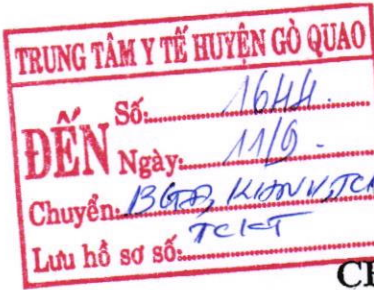 TRUNG TÂM Y TẾ HUYỆN GÒ QUAO
ĐẾN
Số: 1644.
Ngày: 11/9.
Chuyển: BGĐ,
TCKT
Lưu hồ sơ số:
CH